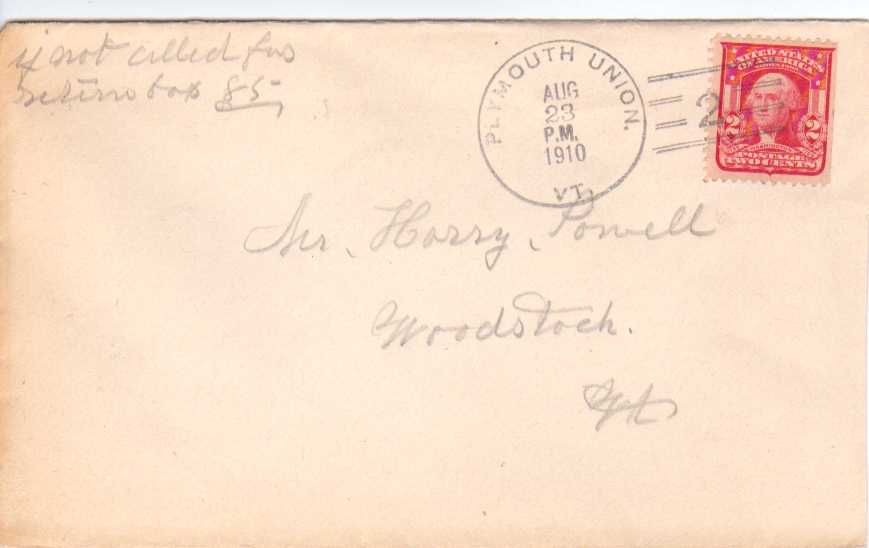 if not called for
return box 85
PLYMOUTH UNION.
AUG
23
P.M.
1910
VT.
2
UNITED STATES
OF AMERICA
2 WASHINGTON 2
POSTAGE
TWO CENTS
Mr. Harry Powell
Woodstock.
Vt